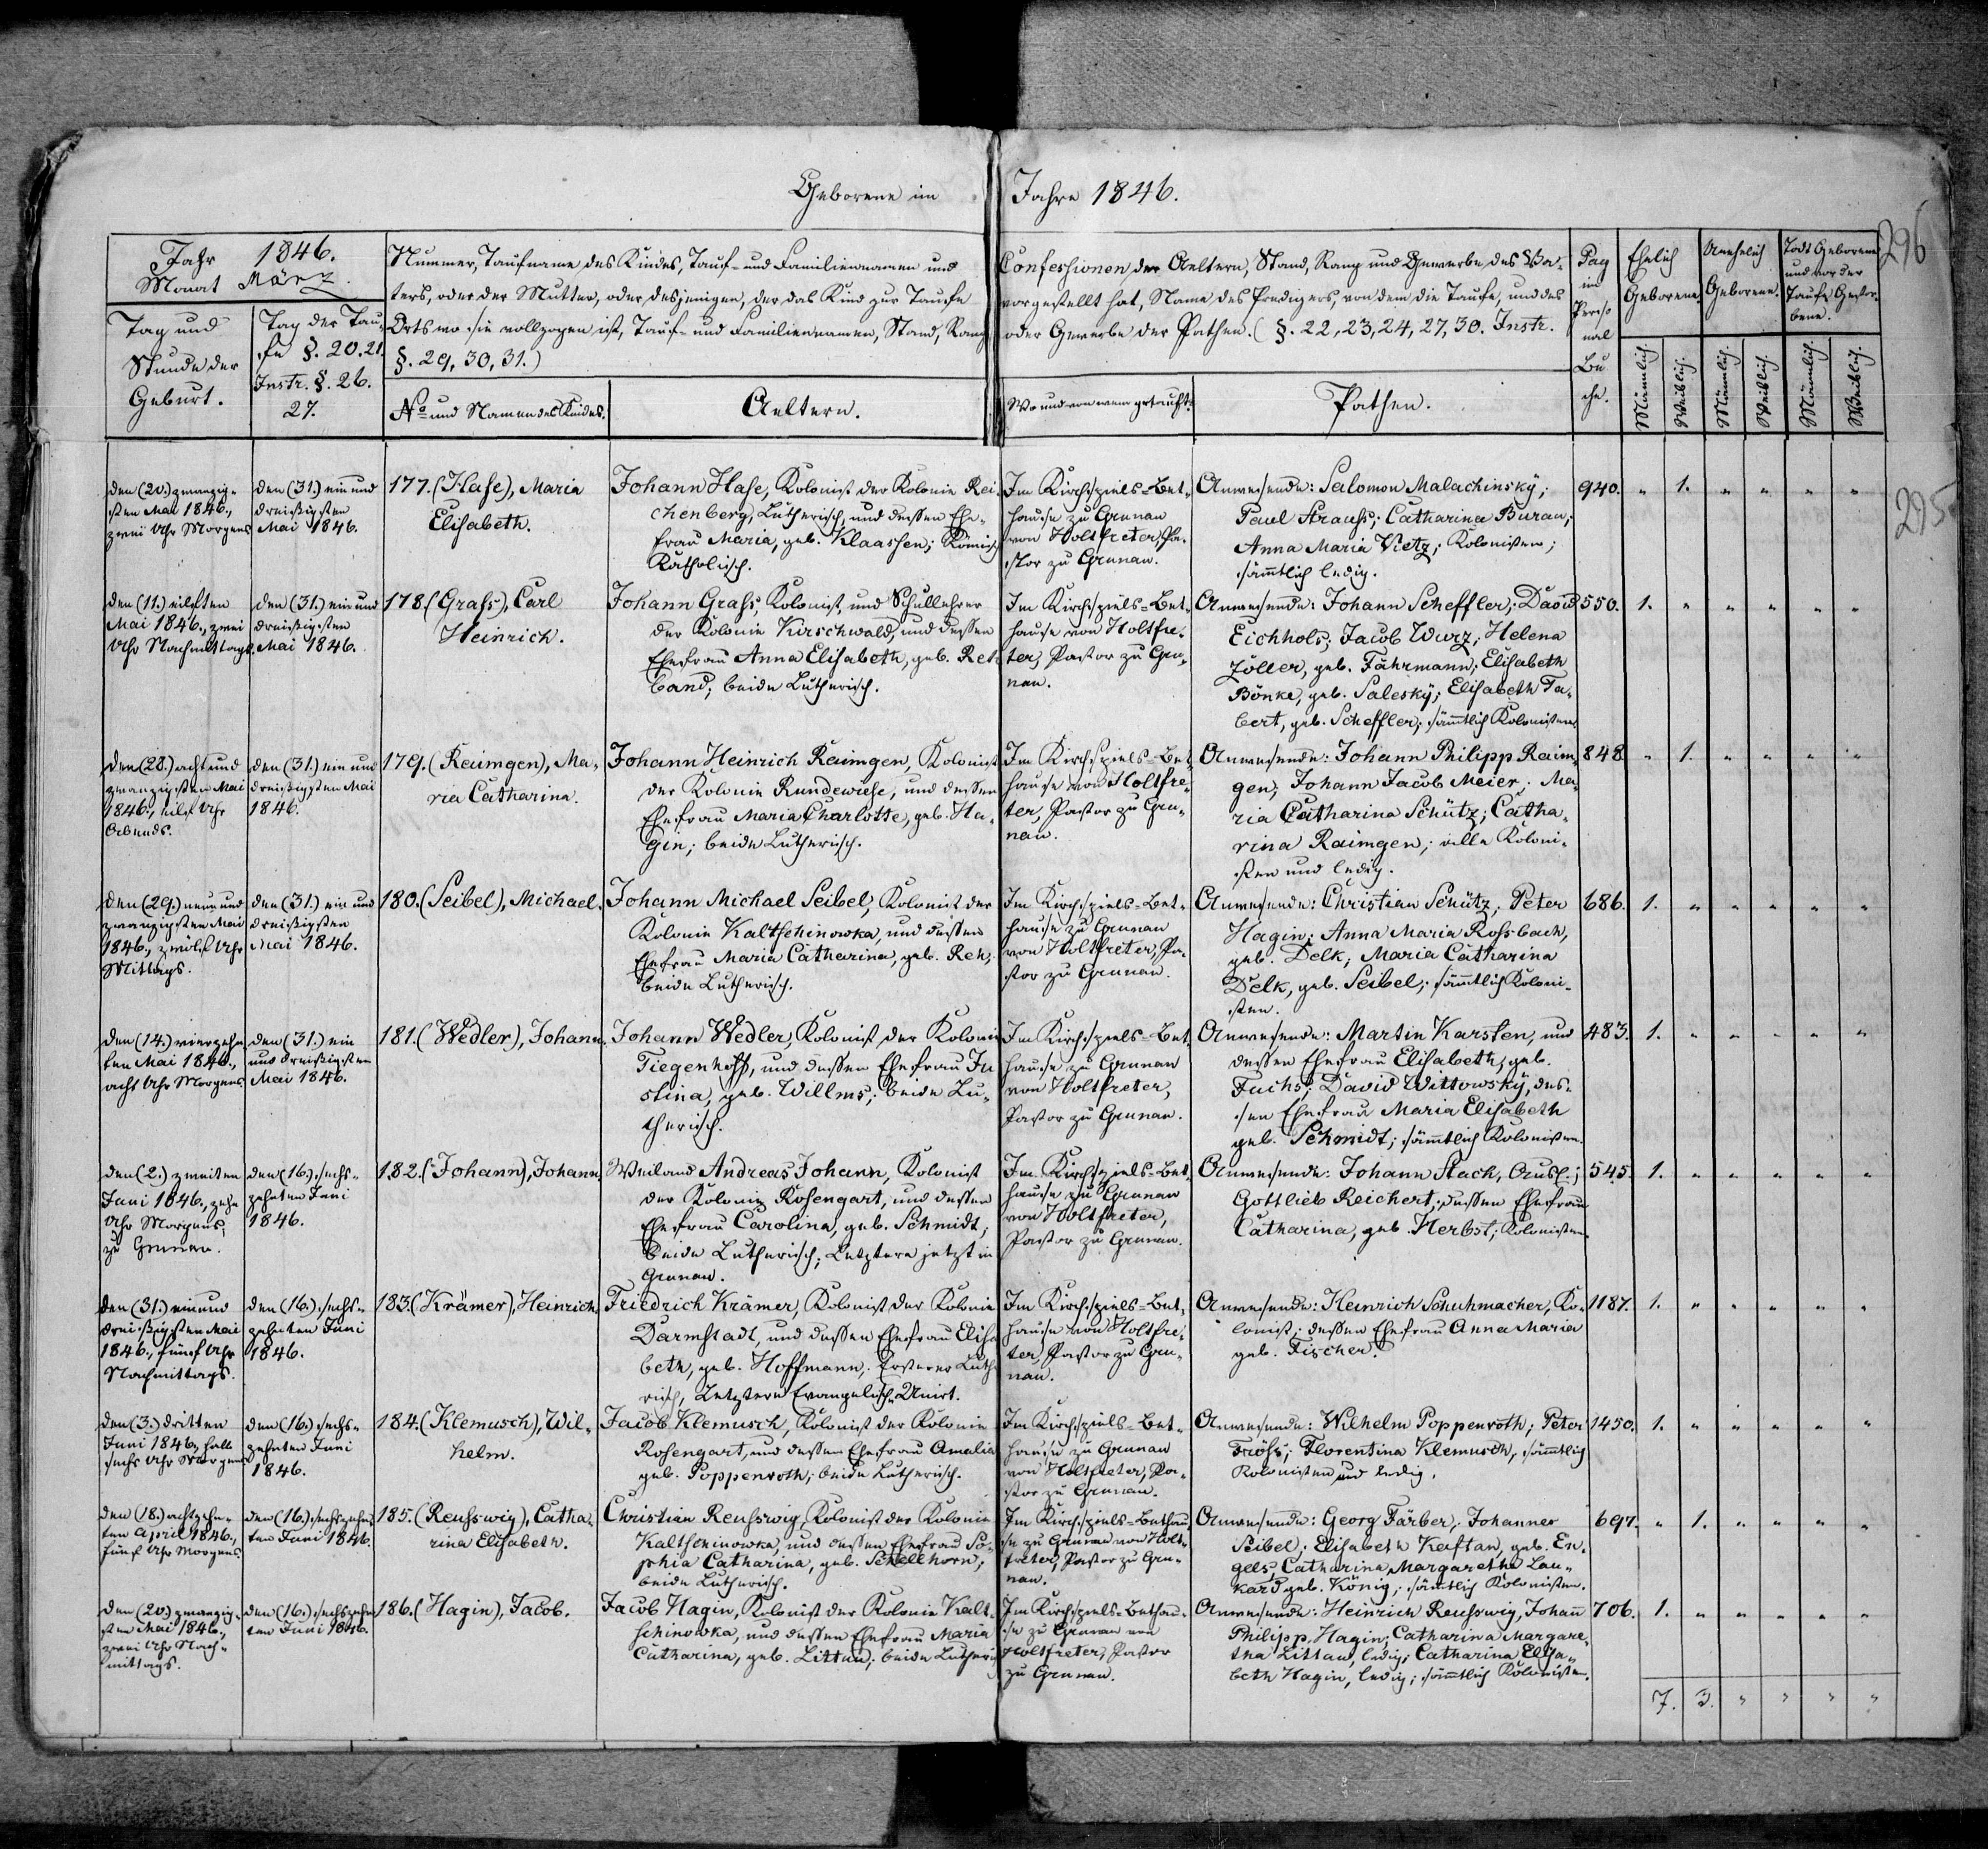 Geborene im Jahre 1846.
296
295
Jahr 1846.
Monat März.
Tag und
Stunde der
Geburt.
Tag der Tau-
fe §. 20. 21.
Instr. §. 26.
27.
Nummer, Taufname des Kindes, Tauf- und Familiennamen und Confessionen der Aeltern, Stand, Rang und Gewerbe des Va-
ters, oder der Mutter, oder desjenigen, der das Kind zur Taufe vorgestellt hat, Name des Predigers, von dem die Taufe, und des
Orts wo sie vollzogen ist, Tauf- und Familiennamen, Stand, Rang oder Gewerbe der Pathen. (§. 22, 23, 24, 27, 30. Instr.
§. 29, 30, 31.)
No und Namen des Kindes.
Aeltern.
Wo und von wem getauft.
Pathen.
Pag
im
Perso
nal
Bu
che.
Ehelich
Geborene.
Unehelich
Geborene.
Todt Geborene
und vor der
Taufe Gestor-
bene.
Männlich.
Weiblich.
Männlich.
Weiblich.
Männlich.
Weiblich.
den (20.) zwanzig-
sten Mai 1846.,
zwei Uhr Morgens
den (31.) ein und
dreißigsten
Mai 1846.
177. (Hase), Maria
Elisabeth.
Johann Hase, Kolonist der Kolonie Rei-
chenberg, Lutherisch, und dessen Ehe-
frau Maria, geb. Klaassen; Römisch
Katholisch.
Im Kirchspiels-Bet-
hause zu Grunau
von Holtfreter, Pa-
stor zu Grunau.
Anwesende: Salomon Malachinsky;
Paul Strauss; Catharina Buran;
Anna Maria Vietz; Kolonisten;
sämmtlich ledig.
940. " 1. " " " "
den (11.) eilften
Mai 1846., zwei
Uhr Nachmittags
den (31.) ein und
dreißigsten
Mai 1846.
178. (Grass), Carl
Heinrich.
Johann Grass, Kolonist, und Schullehrer
der Kolonie Kirschwald, und dessen
Ehefrau Anna Elisabeth, geb. Reh
band; beide Lutherisch.
Im Kirchspiels-Bet-
hause von Holtfre-
ter, Pastor zu Gru-
nau.
Anwesende: Johann Scheffler; David
Eichholz; Jacob Wurz; Helena
Zöller, geb. Fährmann; Elisabeth
Bönke, geb. Salesky; Elisabeth Ta-
bert, geb. Scheffler; sämtlich Kolonisten.
550. 1. " " " " "
den (28.) acht und
zwanzigsten Mai
1846., eilf Uhr
Abends.
den (31.) ein und
dreißigsten Mai
1846.
179. (Raimgen), Ma-
ria Catharina.
Johann Heinrich Raimgen, Kolonist
der Kolonie Rundewiese, und dessen
Ehefrau Maria Charlotte, geb. Ha-
gin; beide Lutherisch.
Im Kirchspiels-Bet-
hause von Holtfre-
ter, Pastor zu Gru-
nau.
Anwesende: Johann Philipp Raim-
gen; Johann Jacob Meier; Ma-
ria Catharina Schütz; Catha-
rina Raimgen; alle Koloni-
sten und ledig.
848 " 1. " " " "
den (29.) neun und
zwanzigsten Mai
1846., zwölf Uhr
Mittags.
den (31.) ein und
dreißigsten
Mai 1846.
180. (Seibel), Michael.
Johann Michael Seibel, Kolonist der
Kolonie Kaltschinowka, und dessen
Ehefrau Maria Catharina, geb. Reh;
beide Lutherisch.
Im Kirchspiels-Bet-
hause zu Grunau
von Holtfreter, Pa-
stor zu Grunau.
Anwesende: Christian Schütz; Peter
Hagin; Anna Maria Rossbach,
geb. Delk; Maria Catharina
Delk, geb. Seibel; sämmtlich Koloni-
sten.
686. 1. " " " " "
den (14.) vierzehn
ten Mai 1846.,
acht Uhr Morgens
den (31.) ein
und dreißigsten
Mai 1846.
181. (Wedler), Johann.
Johann Wedler, Kolonist der Kolonie
Tiegenhoff, und dessen Ehefrau Ju
stina, geb. Willms; beide Lu-
therisch.
Im Kirchspiels-Bet-
hause zu Grunau
von Holtfreter,
Pastor zu Grunau.
Anwesende: Martin Karsten, und
dessen Ehefrau Elisabeth, geb.
Fuchs; David Wittowsky, des-
sen Ehefrau Maria Elisabeth
geb. Schmidt; sämmtlich Kolonisten.
483. 1. " " " " "
den (2.) zweiten
Juni 1846., zehn
Uhr Morgens;
zu Grunau.
den (16.) sechs-
zehnten Juni
1846.
182. (Johann), Johann.
Weiland Andreas Johann, Kolonist
der Kolonie Rosengart, und dessen
Ehefrau Carolina, geb. Schmidt;
beide Lutherisch; Letztere jetzt in
Grunau.
Im Kirchspiels-Bet-
hause zu Grunau
von Holtfreter,
Pastor zu Grunau.
Anwesende: Johann Stach,
Gottlieb Reichert; dessen Ehefrau
Catharina, geb. Herbst; Kolonisten.
545. 1. " " " " "
den (31.) ein und
dreißigsten Mai
1846., fünf Uhr
Nachmittags.
den (16.) sechs-
zehnten Juni
1846.
183. (Krämer), Heinrich.
Friedrich Krämer, Kolonist der Kolonie
Darmstadt, und dessen Ehefrau Elisa
beth, geb. Hoffmann; Ersterer Luthe
risch, Letztere Evangelisch-Unirt.
Im Kirchspiels-Bet-
hause von Holtfre-
ter, Pastor zu Gru-
nau.
Anwesende: Heinrich Schuhmacher, Ko-
lonist; dessen Ehefrau Anna Maria
geb. Fischer.
1187. 1. " " " " "
den (3.) dritten
Juni 1846., halb
sechs Uhr Morgens
den (16.) sechs-
zehnten Juni
1846.
184. (Klemusch), Wil-
helm.
Jacob Klemusch, Kolonist der Kolonie
Rosengart, und dessen Ehefrau Amalia
geb. Poppenroth; beide Lutherisch.
Im Kirchspiels-Bet-
hause zu Grunau
von Holtfreter, Pa-
stor zu Grunau.
Anwesende: Wilhelm Poppenroth; Peter
Fröse; Florentina Klemusch, sämtlich
Kolonisten und ledig.
1450. 1. " " " " "
den (18.) achtzehn-
ten April 1846.,
fünf Uhr Morgens
den (16.) sechszehn
ten Juni 1846.
185. (Reusswig), Catha-
rina Elisabeth.
Christian Reusswig, Kolonist der Kolonie
Kaltschinowka, und dessen Ehefrau So-
phia Catharina, geb. Schellhorn;
beide Lutherisch.
Im Kirchspiels-Bethau-
se zu Grunau von Holt-
freter, Pastor zu Gru-
nau.
Anwesende: Georg Färber; Johannes
Seibel; Elisabeth Kaftan, geb. En-
gels; Catharina Margaretha Lau-
kard geb. König; sämtlich Kolonisten.
697. " 1. " " " "
den (20.) zwanzig-
sten Mai 1846.,
zwei Uhr Nach-
mittags.
den (16.) sechszehn
ten Juni 1846.
186. (Hagin), Jacob.
Jacob Hagin, Kolonist der Kolonie Kalt-
schinowka, und dessen Ehefrau Maria
Catharina, geb. Littau; beide Lutherisch
Im Kirchspiels-Bethau-
se zu Grunau von
Holtfreter, Pastor
zu Grunau.
Anwesende: Heinrich Reusswig, Johan̄
Philipp Hagin; Catharina Margare-
tha Littau, ledig; Catharina Elisa-
beth Hagin, ledig; sämtlich Kolonisten.
706. 1. " " " " "
7. 3. " " " "